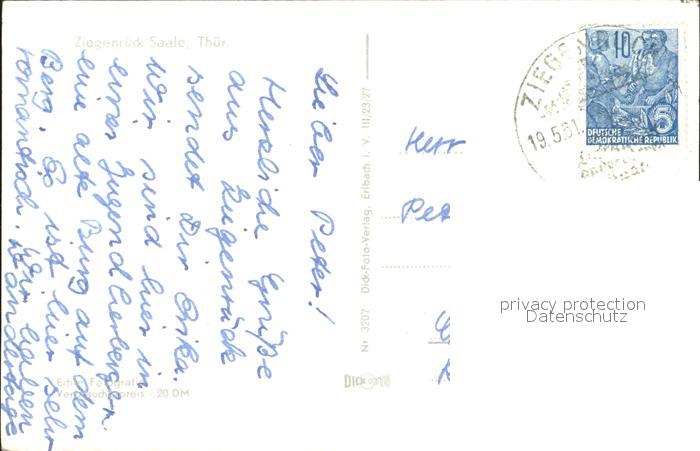 Ziegenrück Saale, Thür.
Lieber Peter!
Herzliche Grüße
aus Zigenrück
sendet Dir Erika.
Wir sind hier in
einer Jugendherberge.
eine alte Burg auf dem
Berg. Es ist hier sehr
romantisch. Wir haben
Wandertage
Echte Fotografie
Verbraucherpreis -.20 DM
Nr 3207 Dick-Foto-Verlag, Erlbach i. V. III/23/27
DICK
Herr
Pet
ZIEGENRÜCK
19.5.61.
10
5
DEUTSCHE
DEMOKRATISCHE REPUBLIK
privacy protection
Datenschutz